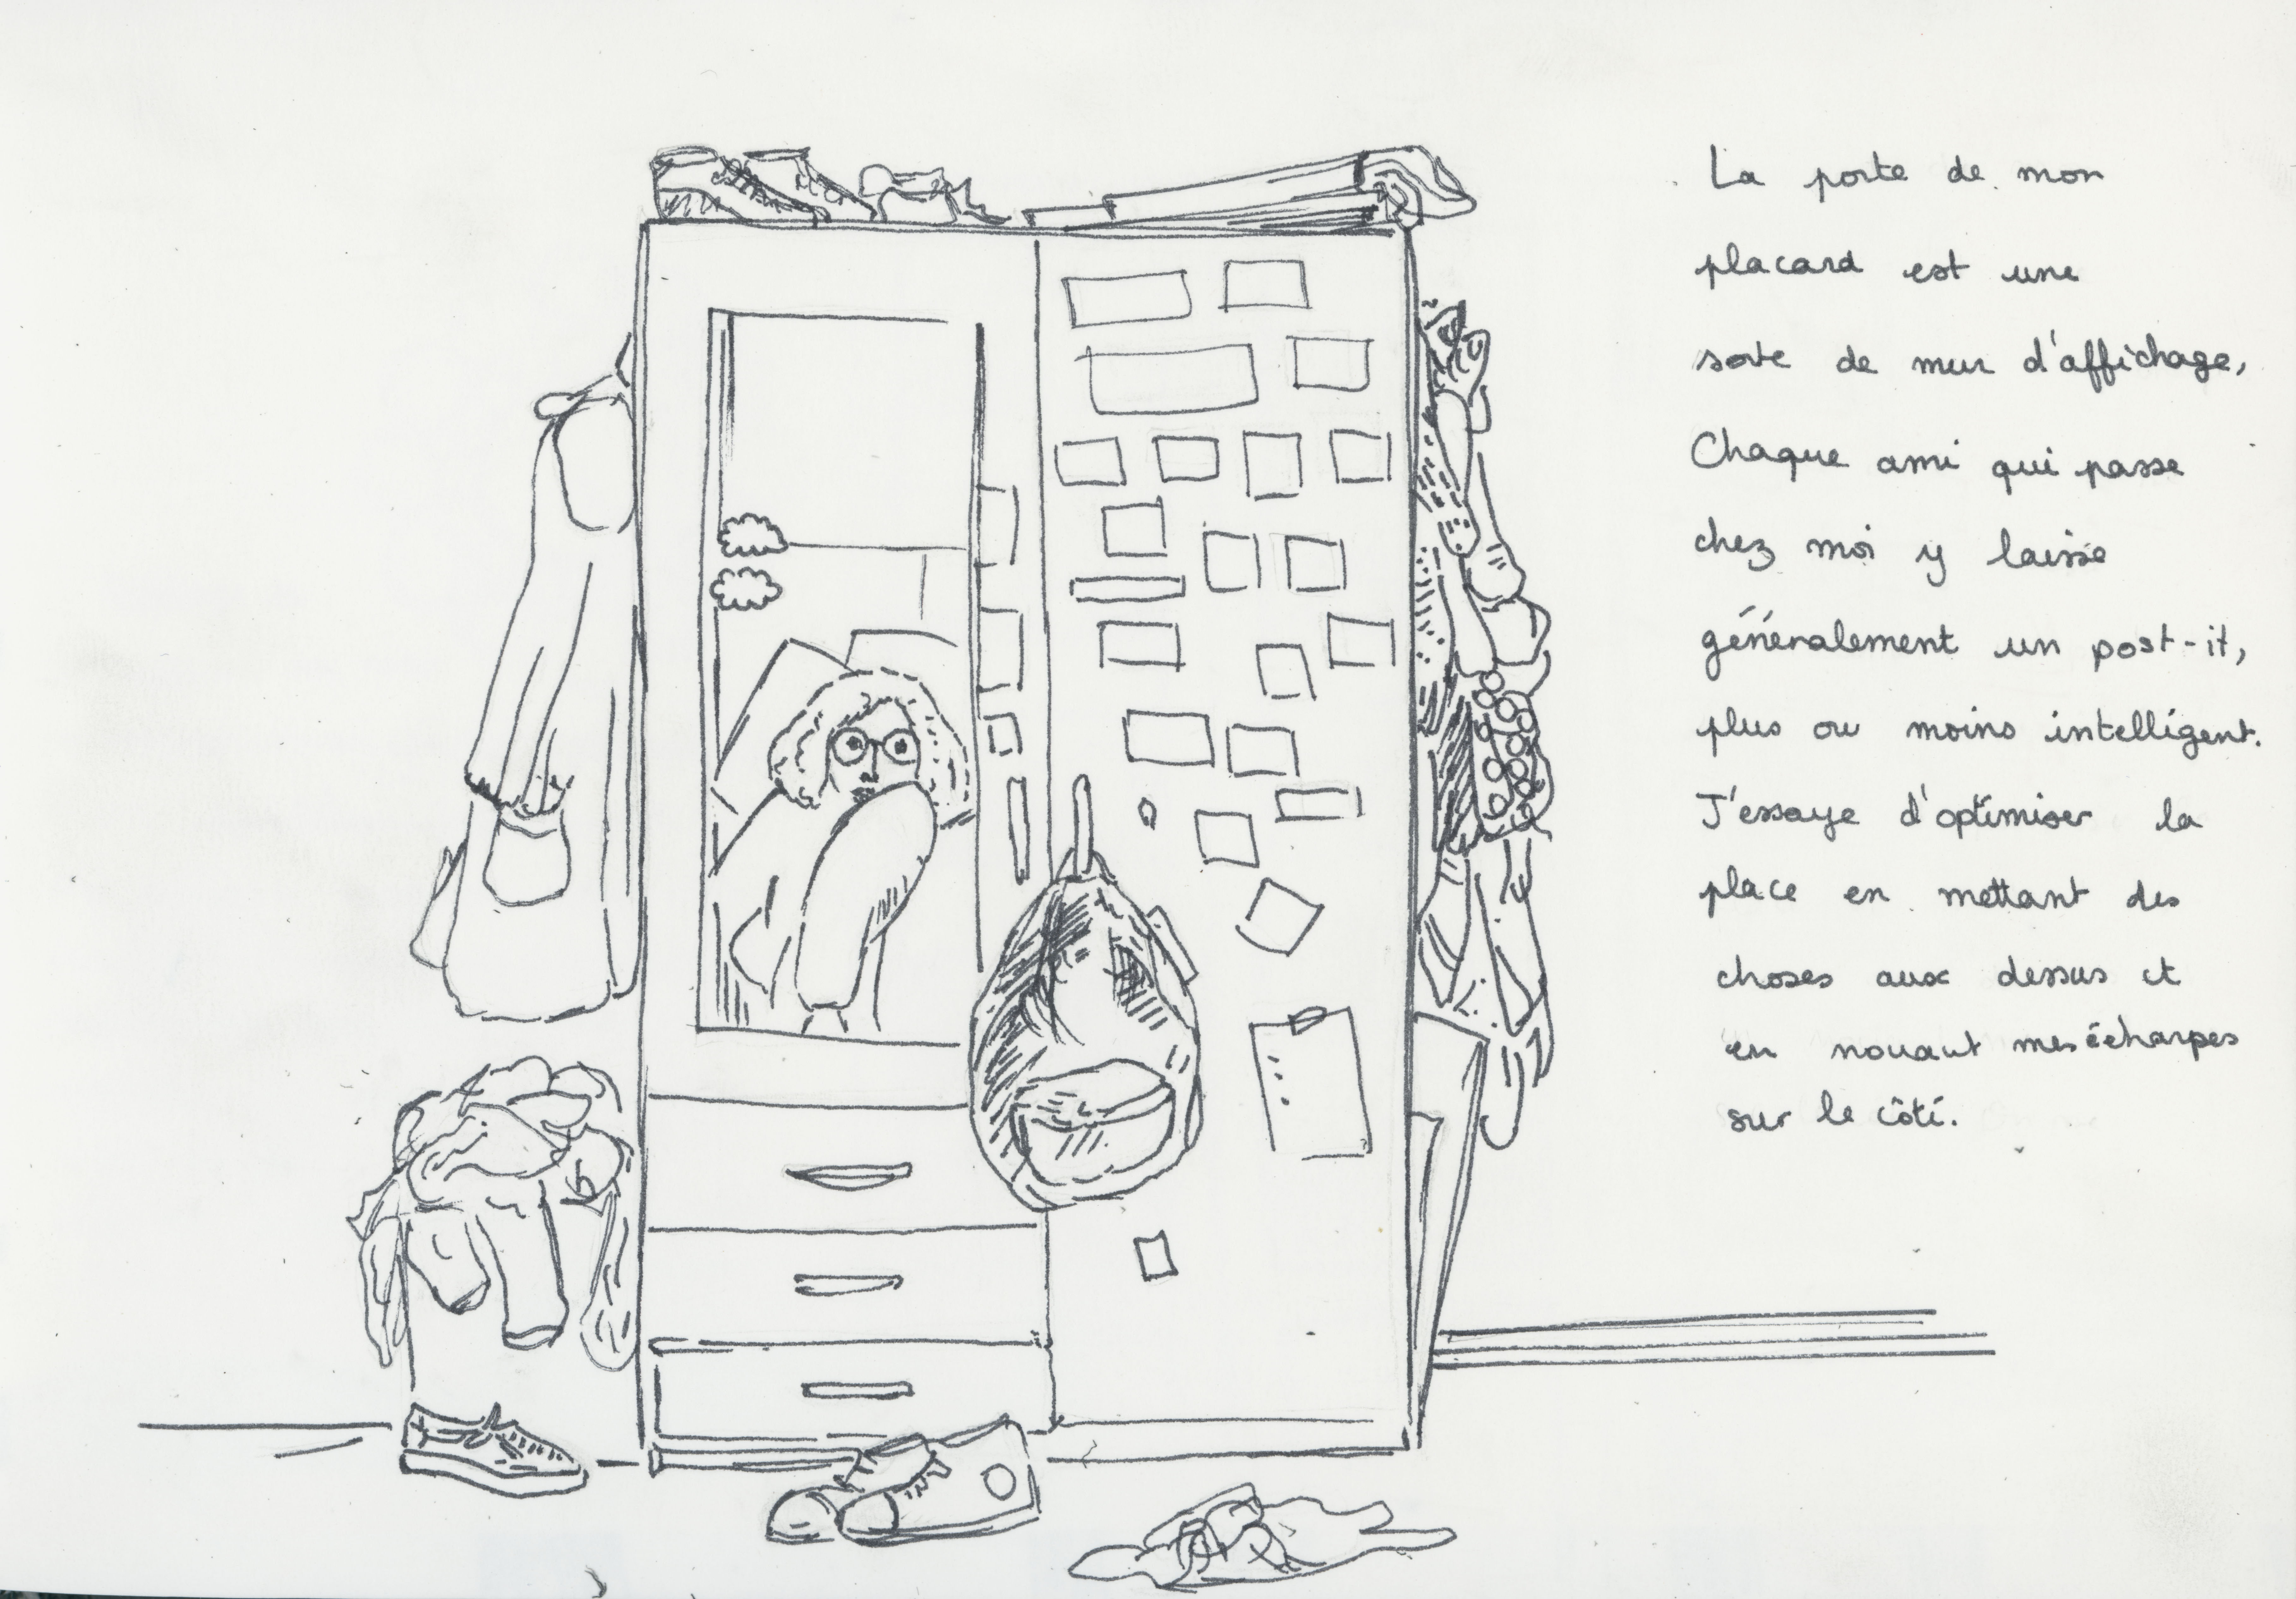 La porte de mon
placard est une
sorte de mur d'affichage,
Chaque ami qui passe
chez moi y laisse
généralement un post-it,
plus ou moins intelligent.
J'essaye d'optimiser la
place en mettant des
choses aux dessus et
en nouant mes écharpes
sur le côté.